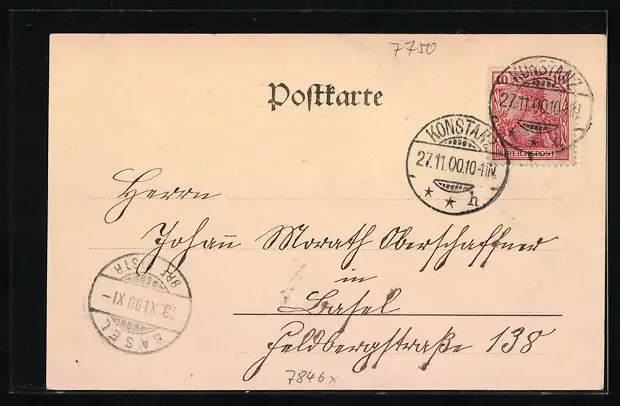 7750
Postkarte
10 10
REICHSPOST
KONSTANZ
27.11.00.10-11N.
* * h
KONSTANZ
27.11.00.10-11N.
* * h
Herrn
Johann Morath Oberschaffner
in
Basel
Feldbergstraße 138
BASEL
XI.00 XI-
7846x